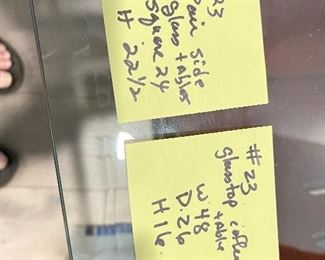 23
Pair side
glass tables
Square 24
H 22 1/2
#23
Glass top coffee
table
W 48
D. 26
H 16